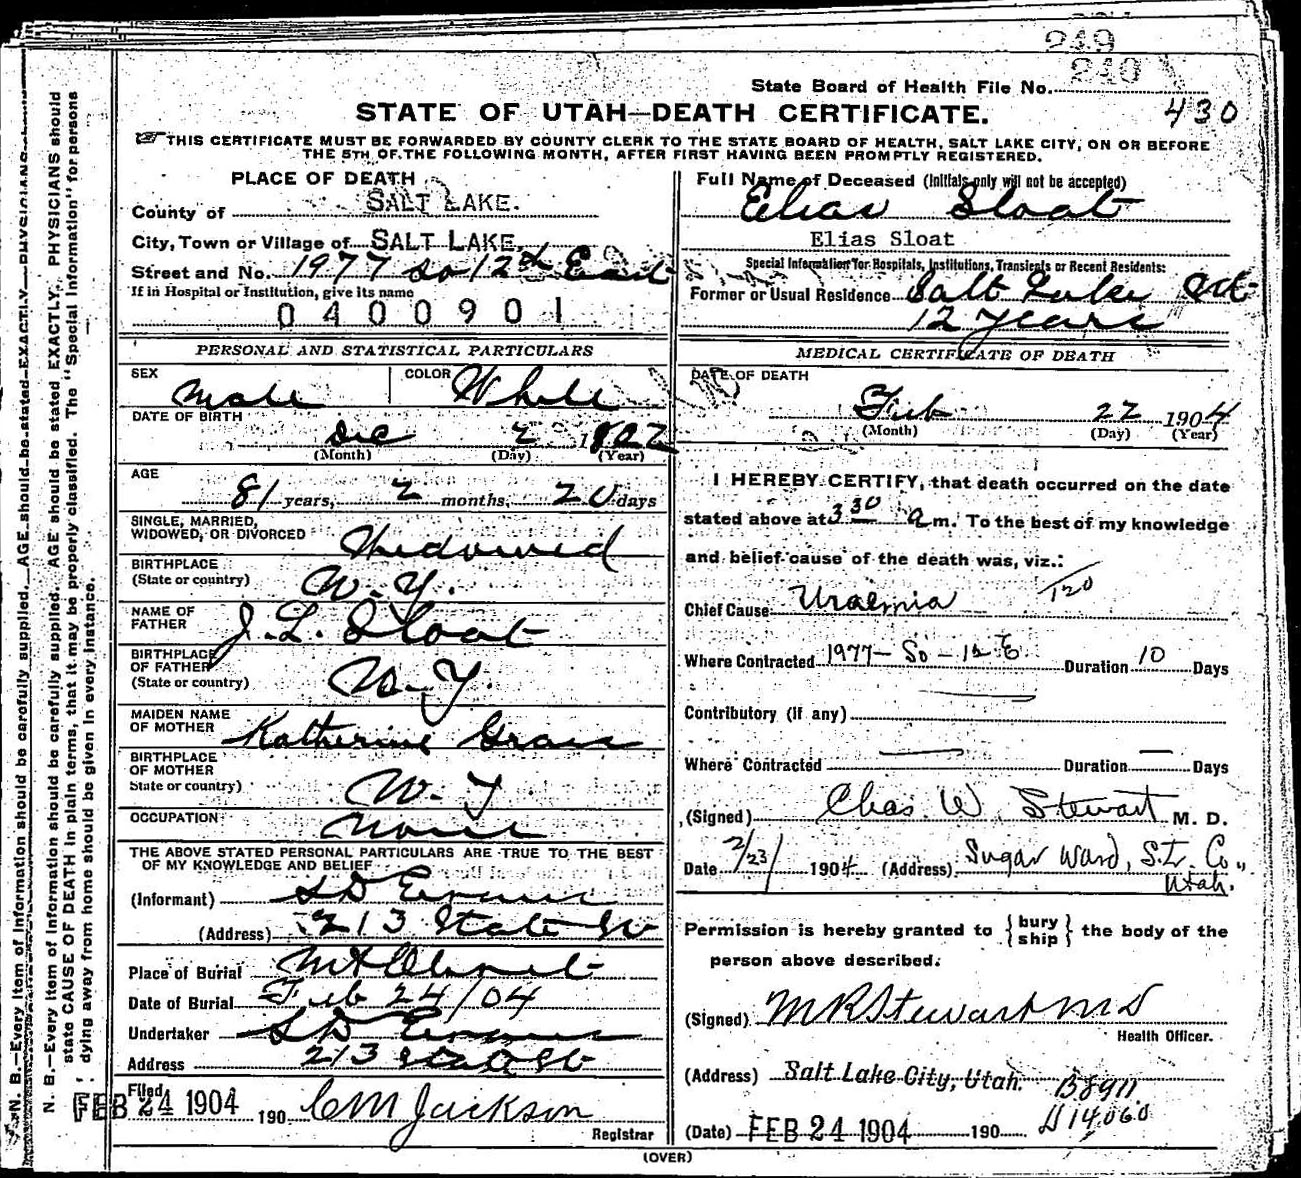 249
240
State Board of Health File No.
430
STATE OF UTAH—DEATH CERTIFICATE.
THIS CERTIFICATE MUST BE FORWARDED BY COUNTY CLERK TO THE STATE BOARD OF HEALTH, SALT LAKE CITY, ON OR BEFORE
THE 5TH OF THE FOLLOWING MONTH, AFTER FIRST HAVING BEEN PROMPTLY REGISTERED.
PLACE OF DEATH
County of SALT LAKE.
City, Town or Village of SALT LAKE.
Street and No. 1977 So 12th East
If in Hospital or Institution, give its name
0400901
Full Name of Deceased (Initials only will not be accepted)
Elias Sloat
Elias Sloat
Special Information for Hospitals, Institutions, Transients or Recent Residents:
Former or Usual Residence Salt Lake
12 years
PERSONAL AND STATISTICAL PARTICULARS
SEX Male COLOR White
DATE OF BIRTH
Dec 2 1822
(Month) (Day) (Year)
AGE
81 years, 2 months, 20 days
SINGLE, MARRIED,
WIDOWED, OR DIVORCED Widowed
BIRTHPLACE
(State or country) N.Y.
NAME OF
FATHER J. L. Sloat
BIRTHPLACE
OF FATHER
(State or country) N.Y.
MAIDEN NAME
OF MOTHER Katherine
BIRTHPLACE
OF MOTHER
State or country) N.Y
OCCUPATION None
THE ABOVE STATED PERSONAL PARTICULARS ARE TRUE TO THE BEST
OF MY KNOWLEDGE AND BELIEF
(Informant) S D Evans
(Address) 213 State St
Place of Burial Mt Olivet
Date of Burial Feb 24/04
Undertaker S D Evans
Address 213 State St
Filed
FEB 24 1904 190 C M Jackson
Registrar
MEDICAL CERTIFICATE OF DEATH
DATE OF DEATH
Feb 22 1904
(Month) (Day) (Year)
I HEREBY CERTIFY, that death occurred on the date
stated above at 3 30 a m. To the best of my knowledge
and belief cause of the death was, viz.:
120
Chief Cause Uraemia
Where Contracted 1977 - So - 12 E. Duration 10 Days
Contributory (if any)
Where Contracted Duration Days
(Signed) Chas. W. Stewart M. D.
Date 2/23/ 1904 (Address) Sugar Ward, S.L. Co.,
Utah.
Permission is hereby granted to {bury ship} the body of the
person above described.
(Signed) M R Stewart M D
Health Officer.
(Address) Salt Lake City, Utah. B8911
(Date) FEB 24 1904 190 D14060
(OVER)
N. B.—Every item of information should be carefully supplied. AGE should be stated EXACTLY. PHYSICIANS
N. B.—Every item of information should be carefully supplied. AGE should be stated EXACTLY. PHYSICIANS should
state CAUSE OF DEATH in plain terms, that it may be properly classified. The "Special Information" for persons
dying away from home should be given in every instance.